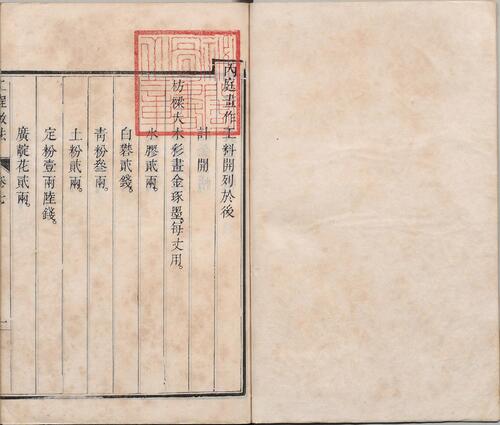 內庭畫作工料開列於後
計開
枋樑大木彩畫金琢墨。每丈用。
水膠貳兩。
白礬貳錢。
青粉叁兩。
土粉貳兩。
定粉壹兩陸錢。
廣靛花貳兩。
工程做法
卷七
一